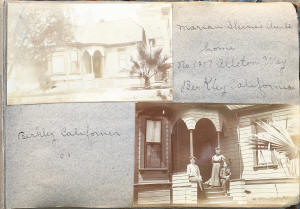 Marian Shinn's Aunt's
home
No 1807 Allston Way
Berkley, California
Berkley California
01